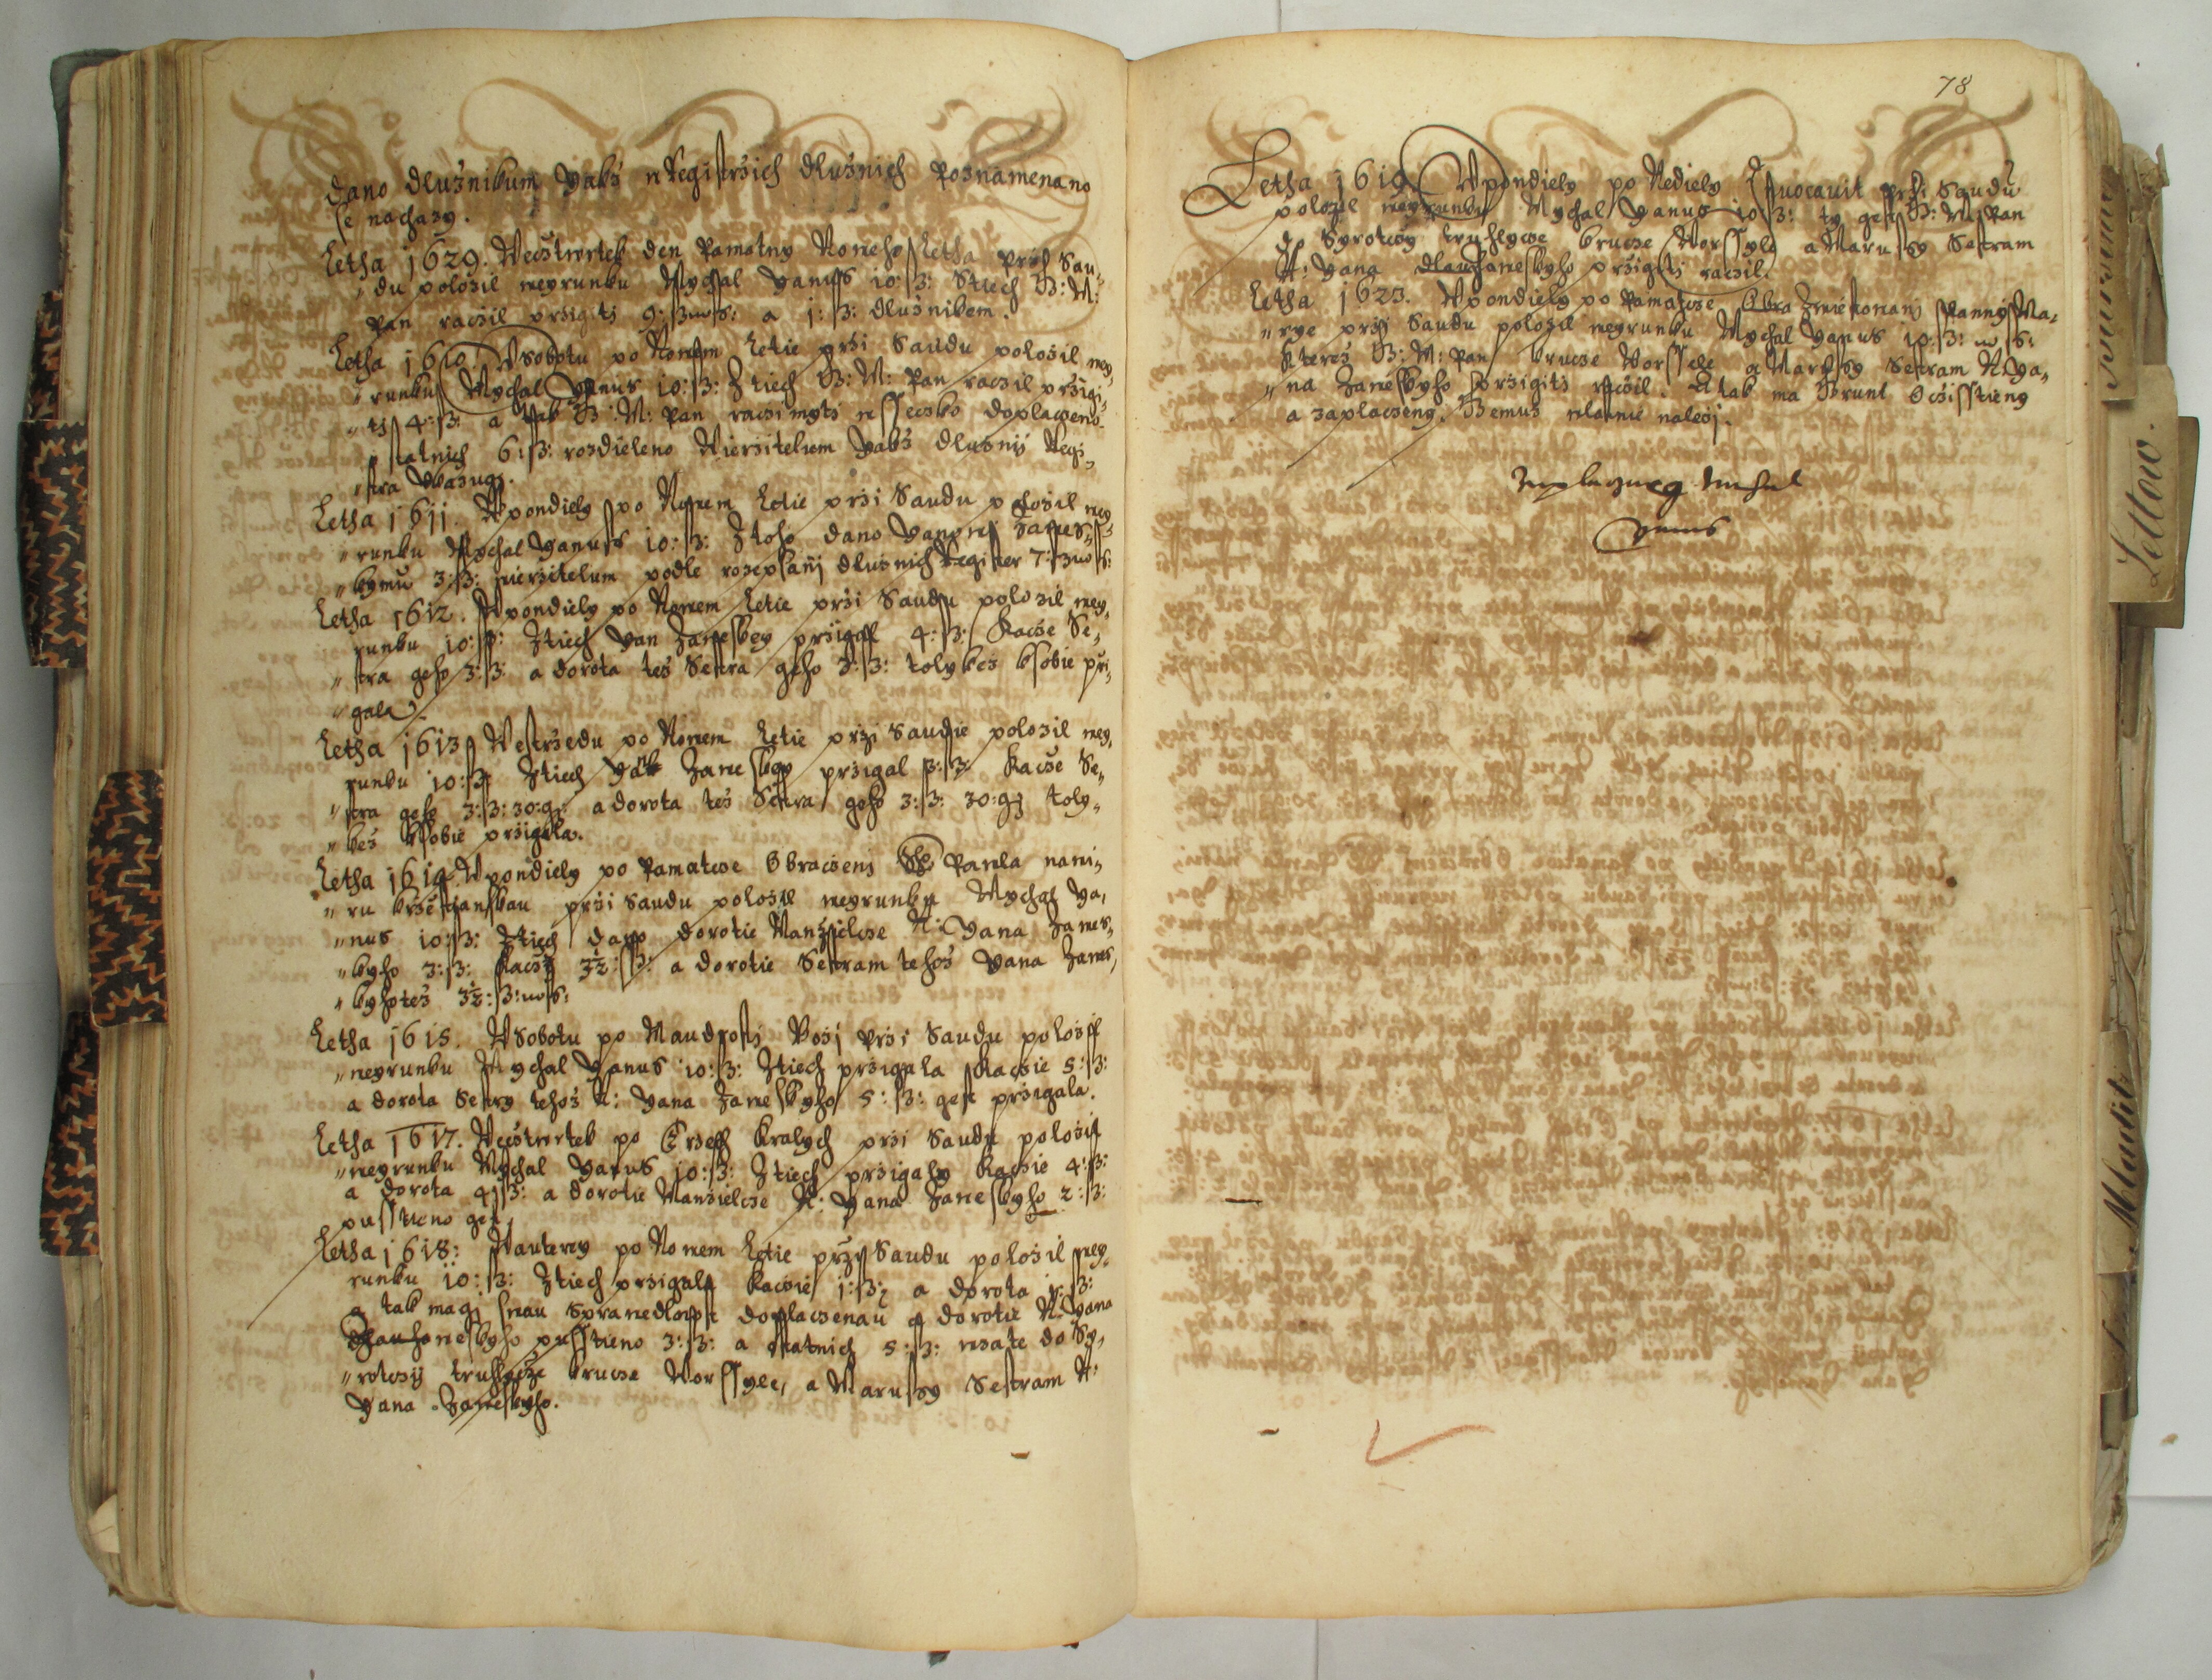 dano dlužnikum Yakž w Registržich dlužnich Poznamenano
se nachazy.
Letha 1629. Wecžtwrtek den Pamatny Noweho Letha Przi Sau„
„du položil neyrunku Mychal Yanus 10:ß: Stiech G: M:
Pan racžil przigiti 9:ß: w s: a 1:ß: dlužnikem.
Letha 1610. W Sobotu po Nowem Letie przi Saudu položil ney„
„runku Mychal Yanus 10:ß: Z tiech G: M: Pan racžil przigi„
„ti 4:ß: a tak G: M: Pan racži myti wssecžko doplaczeno
statnich 6:ß: rozdieleno Wierzitelum Yakž dlužnij Regi„
„stra Ukazugi.
Letha 1611. W pondiely po Nowem Letie przi Saudu položil ney„
„runku Mychal Yanus 10:ß: Z toho dano Yanowi Zanes„
„kymu 3:ß: wierzitelum podle rozepsanij dlužnich Register 7:ß: w s:
Letha 1612. W pondiely po Nowem Letie przi Saudu položil ney„
runku 10:ß: Z tiech Yan Zaneskey przigal 4:ß: Kacže Se„
„stra geho 3:ß: a dorota tež Sestra geho 3:ß: tolykež k sobie pri„
„gala.
Letha 1613 We strzedu po Nowem Letie przi Saudie položil ney„
runku 10:ß: Z tiech Yan Zaneskey przigal 3:ß: Kacže Se„
„stra geho 3:ß: 30:g: a dorota tež Sestra geho 3:ß: 30:g: toly„
„kež k sobie przigala.
Letha 1614 W pondiely po Pamatce Obracženi S: Pawla nawi„
„ru krzestianskau przi Saudu položil neyrunku Mychal Ya„
„nus 10:ß: Z tiech dano dorotie Manželce N: Yana Zanes„
„kyho 3:ß: Kacži 3½:ß: a dorotie Sestram tehož Yana Zanes„
„kyho tež 3½:ß: w s:
Letha 1615. W Sobotu po Maudrosti Boži Przi Saudu položil
„neyrunku Mychal Yanus 10:ß: Z tiech przigala Kacžie 5:ß:
a dorota Sestry tehož N: Yana Zaneskyho 5:ß: gest przigala.
Letha 1617. We cžtwrtek po Trzech Kralych przi Saudu položil
„neyrunku Mychal Yanus 10:ß: Z tiech przigaly Kacžie 4:ß:
a dorota 4:ß: a dorotie Manželce N: Yana Zaneskyho 2:ß:
pusstieno gest.
Letha 1618: W auterey po Nowem Letie przy Saudu položil ney„
runku 10:ß: Z tiech przigala Kacžie 1:ß: a dorota 1:ß:
a tak magi swau Sprawedlnost doplacženau a dorotie N: Yana
Zaneskyho pusstieno 3:ß: a statnich 5:ß: wzate do Sy„
„rotcži truhlycže krucze Worssyle, a Marussy Sestram N:
Yana Zaneskyho.
78
Letha 1619. W pondiely po Nediely Invocavit przi Saudu
položil neyrunku Mychal Yanus 10:ß: ty gest G: M: Pan
do Syrotczy truhlycze krucze Worssyle a Marussy Sestram
N: Yana Zaneskyho przigiti racžil.
Letha 1623. W pondiely po Pamatcze Obra Zwiestowani Panny Ma„
„rye przi Saudu položil neyrunku Mychal Yanus 10:ß: w s:
Kterež G: M: Pan krucze Worssyle a Marussy Sestram N: Ya„
„na Zaneskyho przigiti racžil. A tak ma Grunt Ocžisstieny
a zaplaczeny. Gemuž wlastnie naležj.
Yanus
Lettow.